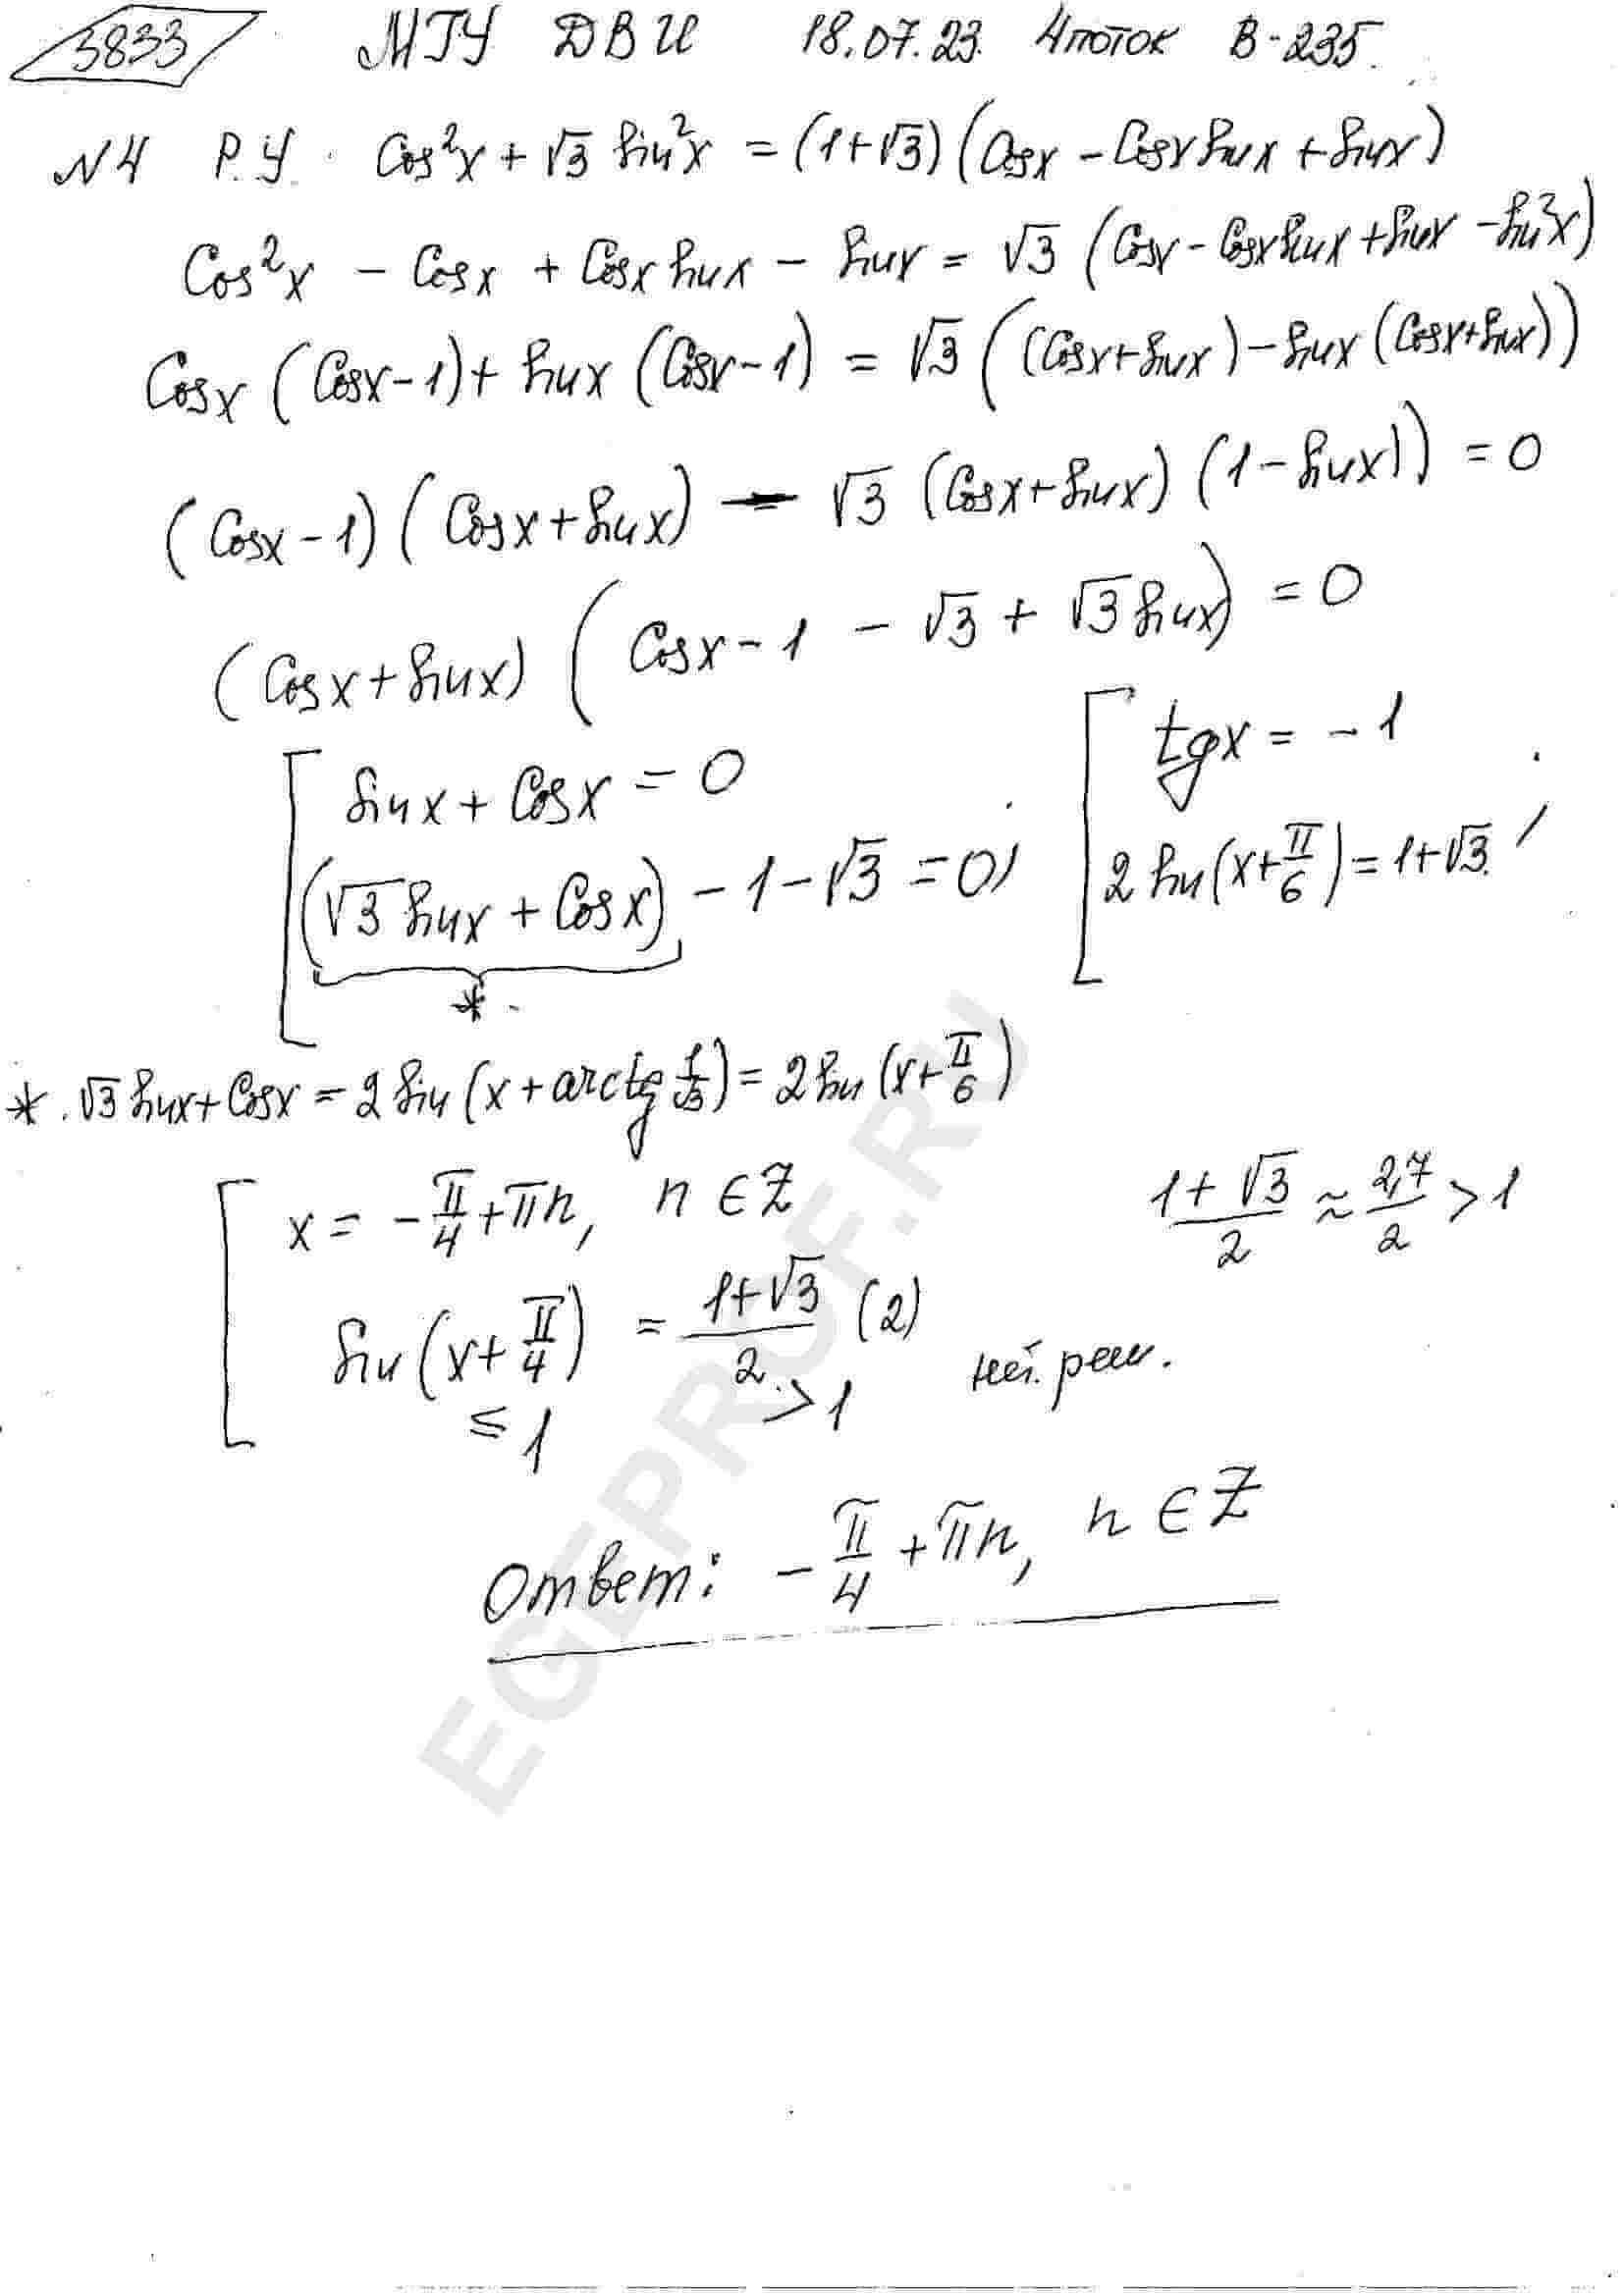 3833 МГУ ДВИ 18.07.23. 4 поток В-235.
N4 Р.У. Cos²x + √3 sin²x = (1+√3)(Cosx - Cosx sinx + sinx)
Cos²x - Cosx + Cosx sinx - sinx = √3 (Cosx - Cosx sinx + sinx - sin²x)
Cosx (Cosx-1) + sinx (Cosx-1) = √3 ((Cosx+sinx) - sinx (Cosx+sinx))
(Cosx-1)(Cosx+sinx) - √3 (Cosx+sinx)(1-sinx)) = 0
(Cosx+sinx)(Cosx-1 - √3 + √3 sinx) = 0
[ sinx + Cosx = 0 [ tgx = -1
(√3 sinx + Cosx) - 1 - √3 = 0; 2 sin(x+π/6) = 1+√3.
*
* . √3 sinx + Cosx = 2 sin (x + arctg 1/√3) = 2 sin (x+π/6)
[ x = -π/4 + πn, n ∈ Z (1+√3)/2 ≈ 2,7/2 > 1
sin (x+π/4) = (1+√3)/2 (2) нет. реш.
≤ 1 > 1
Ответ: -π/4 + πn, n ∈ Z
EGEPROF.RU